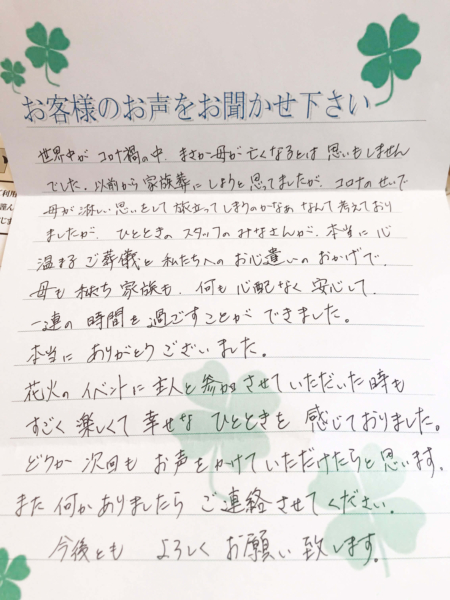 お客様のお声をお聞かせ下さい
世界中が コロナ禍の中、まさか母が亡くなるとは 思いもしません
でした。以前から 家族葬にしようと思ってましたが、コロナのせいで
母が淋しい思いをして 旅立ってしまうのかなぁ なんて考えており
ましたが、ひとときの スタッフのみなさんが、本当に 心
温まる ご葬儀と 私たちへの お心遣いのおかげで、
母も 私たち 家族も、何も 心配なく 安心して、
一連の 時間を 過ごすことが できました。
本当に ありがとうございました。
花火の イベントに 主人と 参加させていただいた時も
すごく 楽しくて 幸せな ひとときを 感じておりました。
どうか 次回も お声をかけていただけたらと思います。
また 何かありましたら ご連絡させてください。
今後とも よろしく お願い 致します。